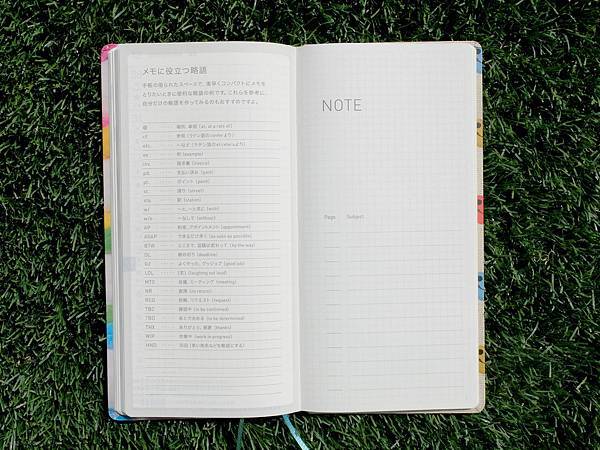 メモに役立つ略語
手帳の限られたスペースで、素早くコンパクトにメモを
とりたいときに便利な略語の例です。これらを参考に、
自分だけの略語を作ってみるのもおすすめですよ。
@ 場所、単価 (at, at a rate of)
cf. 参照 (ラテン語のconferより)
etc. ~など (ラテン語のet ceteraより)
ex. 例 (example)
inv. 請求書 (invoice)
pd. 支払い済み (paid)
pt. ポイント (point)
st. 通り (street)
sta. 駅 (station)
w/ ~と、~と共に (with)
w/o ~なしで (without)
AP 約束、アポイントメント (appointment)
ASAP できるだけ早く (as soon as possible)
BTW ところで、話題は変わって (by the way)
DL 締め切り (deadline)
GJ よくやった、グッジョブ (good job)
LOL (笑) (laughing out loud)
MTG 会議、ミーティング (meeting)
NR 直帰 (no return)
REQ 依頼、リクエスト (request)
TBC 確認中 (to be confirmed)
TBD あとで決める (to be determined)
THX ありがとう、感謝 (thanks)
WIP 作業中 (work in progress)
HND 羽田
NOTE
Page Subject